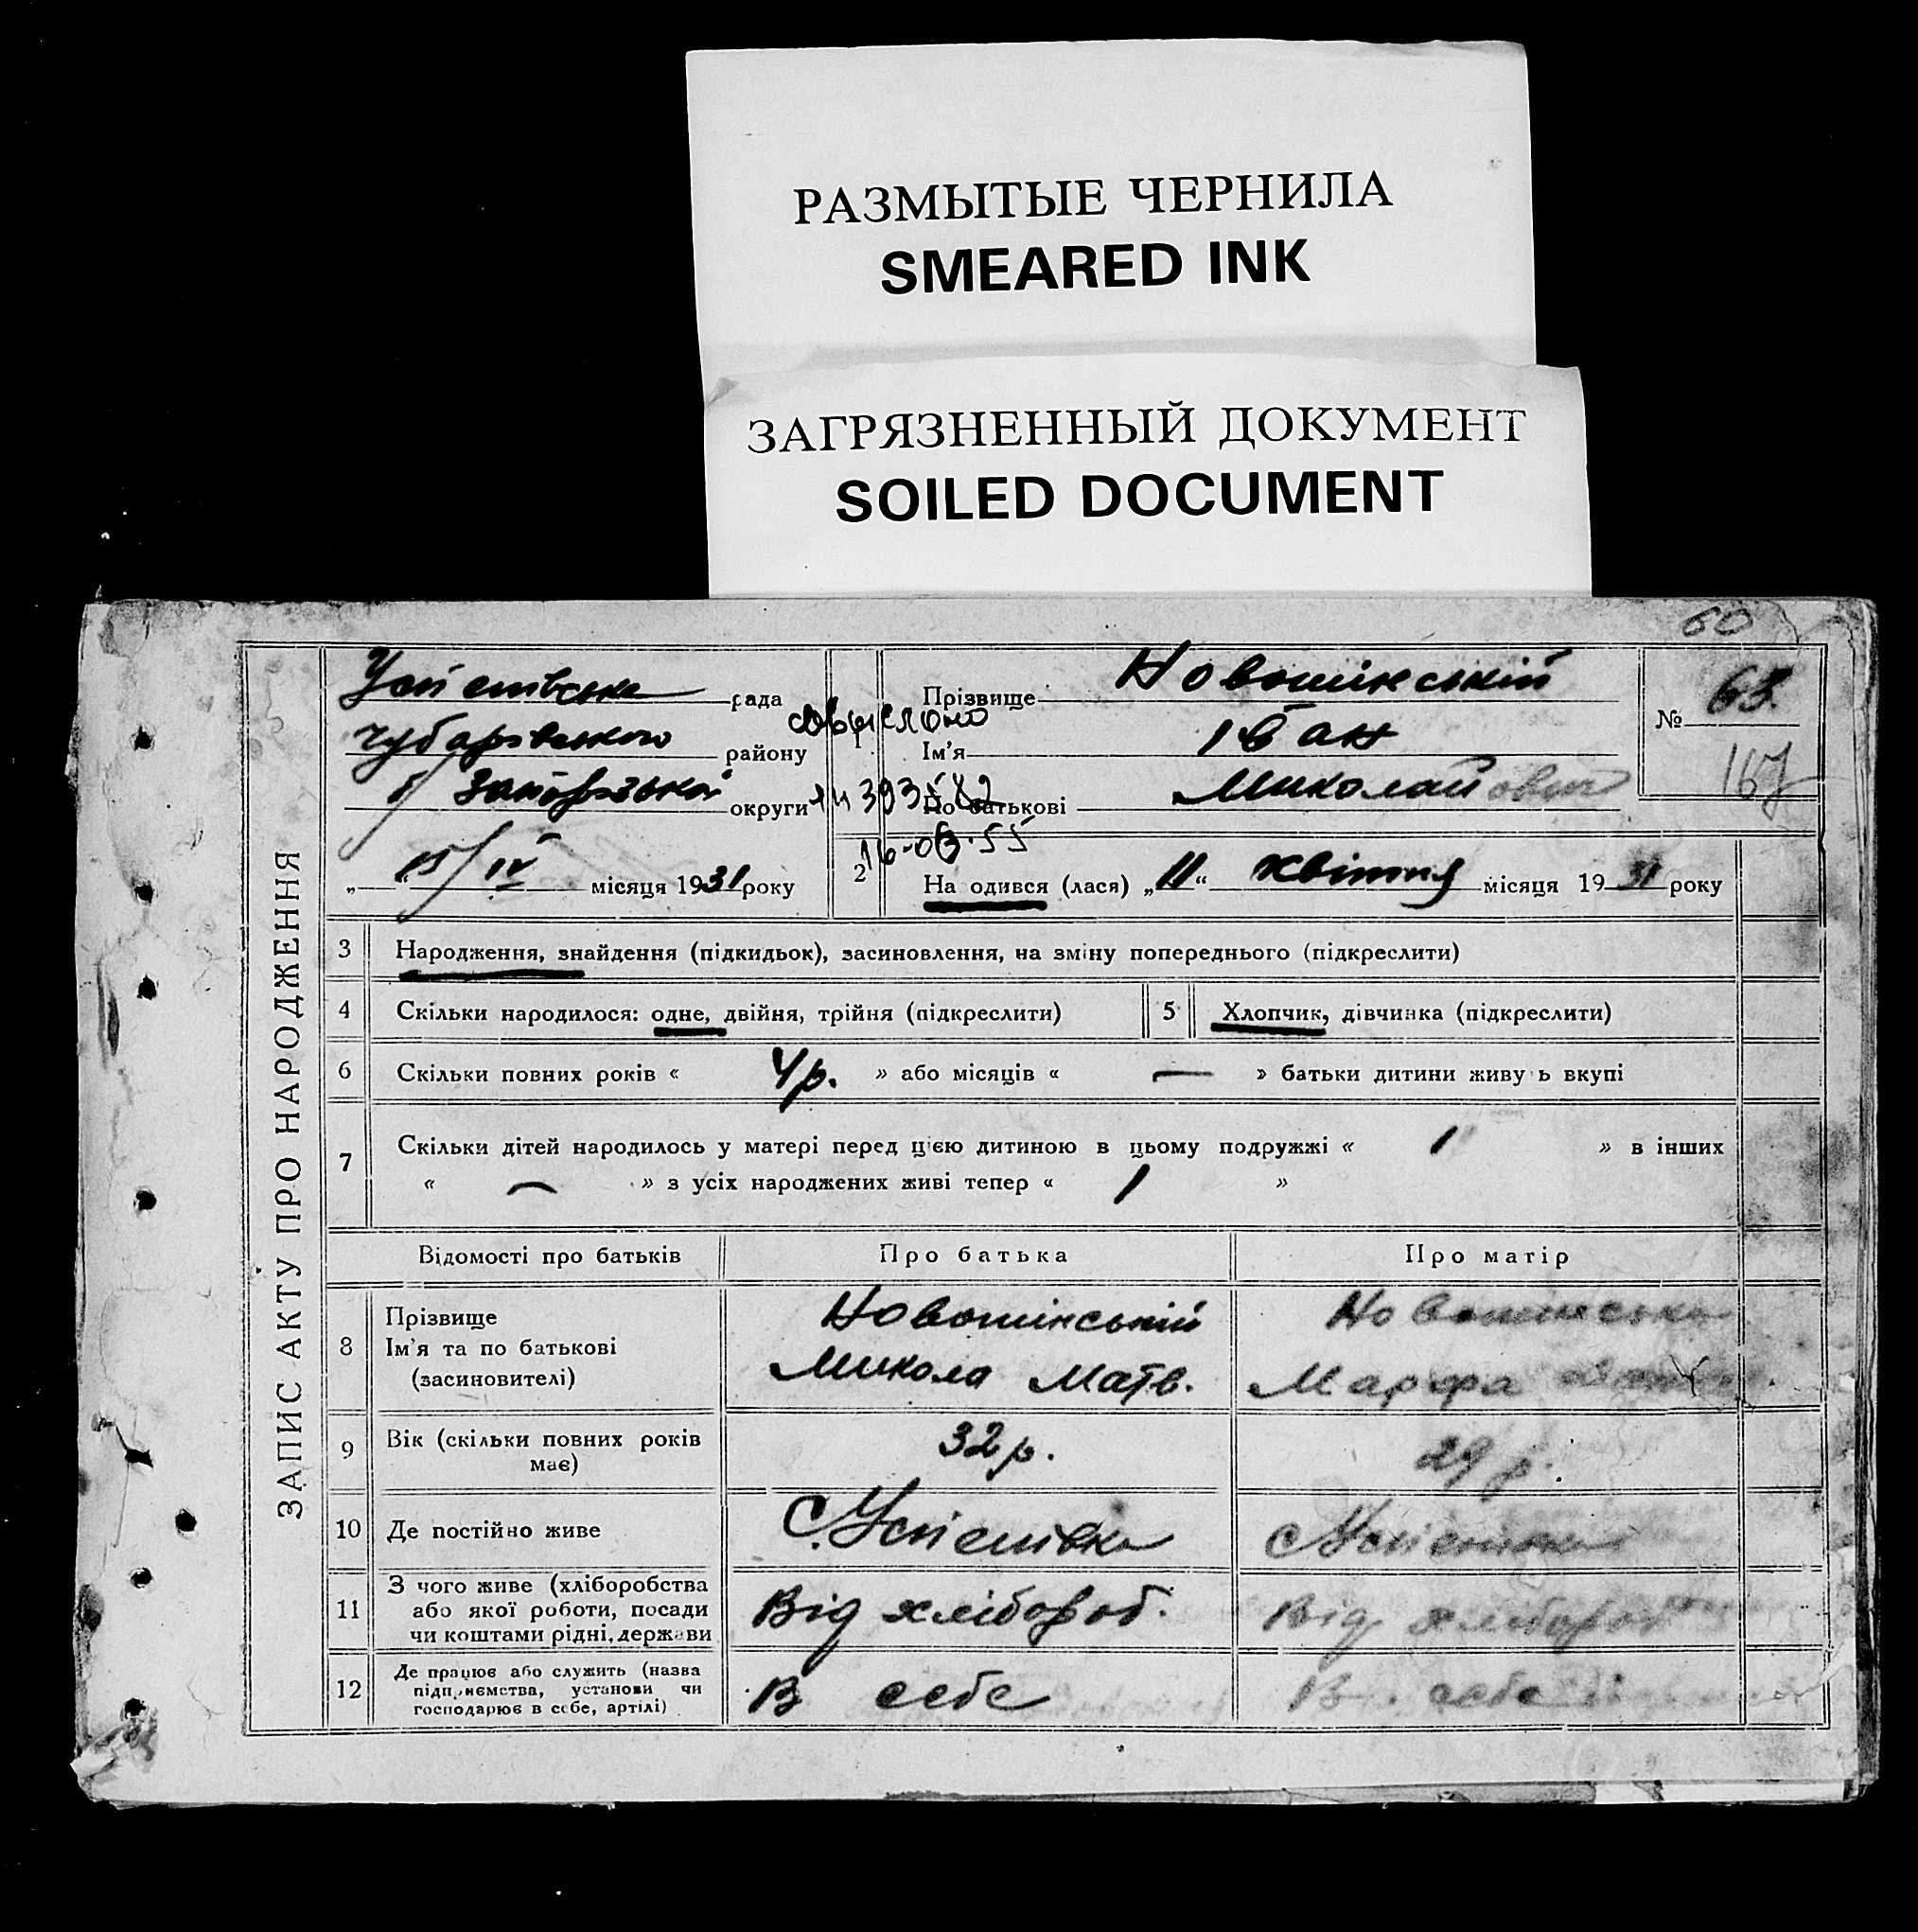 РАЗМЫТЫЕ ЧЕРНИЛА
SMEARED INK
ЗАГРЯЗНЕННЫЙ ДОКУМЕНТ
SOILED DOCUMENT
60
ЗАПИС АКТУ ПРО НАРОДЖЕННЯ
Успенівська рада
Чубарівського району
Запорізької округи
„ “ 15/IV місяця 1931 року
1
Прізвище Новошинський
Ім'я Іван
По батькові Миколайович
№ 63.
167
16-03-55
2
На одився (лася) „11“ квітня місяця 1931 року
3 Народження, знайдення (підкидьок), засиновлення, на зміну попереднього (підкреслити)
4 Скільки народилося: одне, двійня, трійня (підкреслити) 5 Хлопчик, дівчинка (підкреслити)
6 Скільки повних років « 4 р. » або місяців « — » батьки дитини живу ь вкупі
7 Скільки дітей народилось у матері перед цією дитиною в цьому подружжі « 1 » в інших
« — » з усіх народжених живі тепер « 1 »
Відомості про батьків Про батька Про матір
8 Прізвище
Ім'я та по батькові
(засиновителі)
Новошинський Новошинська
Микола Матв. Марфа
9 Вік (скільки повних років
має)
32 р. 29 р.
10 Де постійно живе С. Успенівка С. Успенівка
11 З чого живе (хліборобства
або якої роботи, посади
чи коштами рідні, держави
Від хлібороб. Від хлібороб
12 Де працює або служить (назва
підприємства, установи чи
господарює в себе, артілі)
В себе В себе